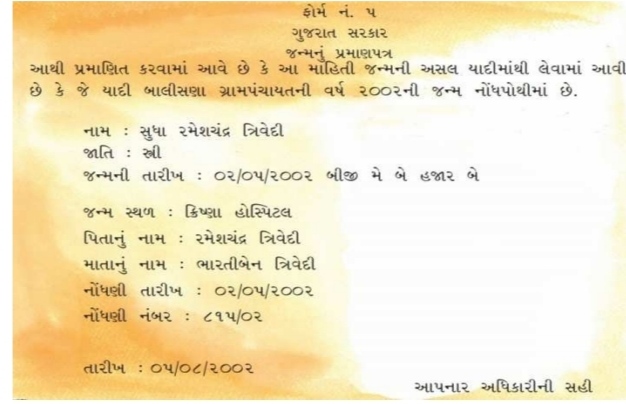 ફોર્મ નં. ૫
ગુજરાત સરકાર
જન્મનું પ્રમાણપત્ર
આથી પ્રમાણિત કરવામાં આવે છે કે આ માહિતી જન્મની અસલ યાદીમાંથી લેવામાં આવી
છે કે જે યાદી બાલીસણા ગ્રામપંચાયતની વર્ષ ૨૦૦૨ની જન્મ નોંધપોથીમાં છે.
નામ : સુધા રમેશચંદ્ર ત્રિવેદી
જાતિ : સ્ત્રી
જન્મની તારીખ : ૦૨/૦૫/૨૦૦૨ બીજી મે બે હજાર બે
જન્મ સ્થળ : ક્રિષ્ણા હોસ્પિટલ
પિતાનું નામ : રમેશચંદ્ર ત્રિવેદી
માતાનું નામ : ભારતીબેન ત્રિવેદી
નોંધણી તારીખ : ૦૨/૦૫/૨૦૦૨
નોંધણી નંબર : ૮૧૫/૦૨
તારીખ : ૦૫/૦૮/૨૦૦૨
આપનાર અધિકારીની સહી